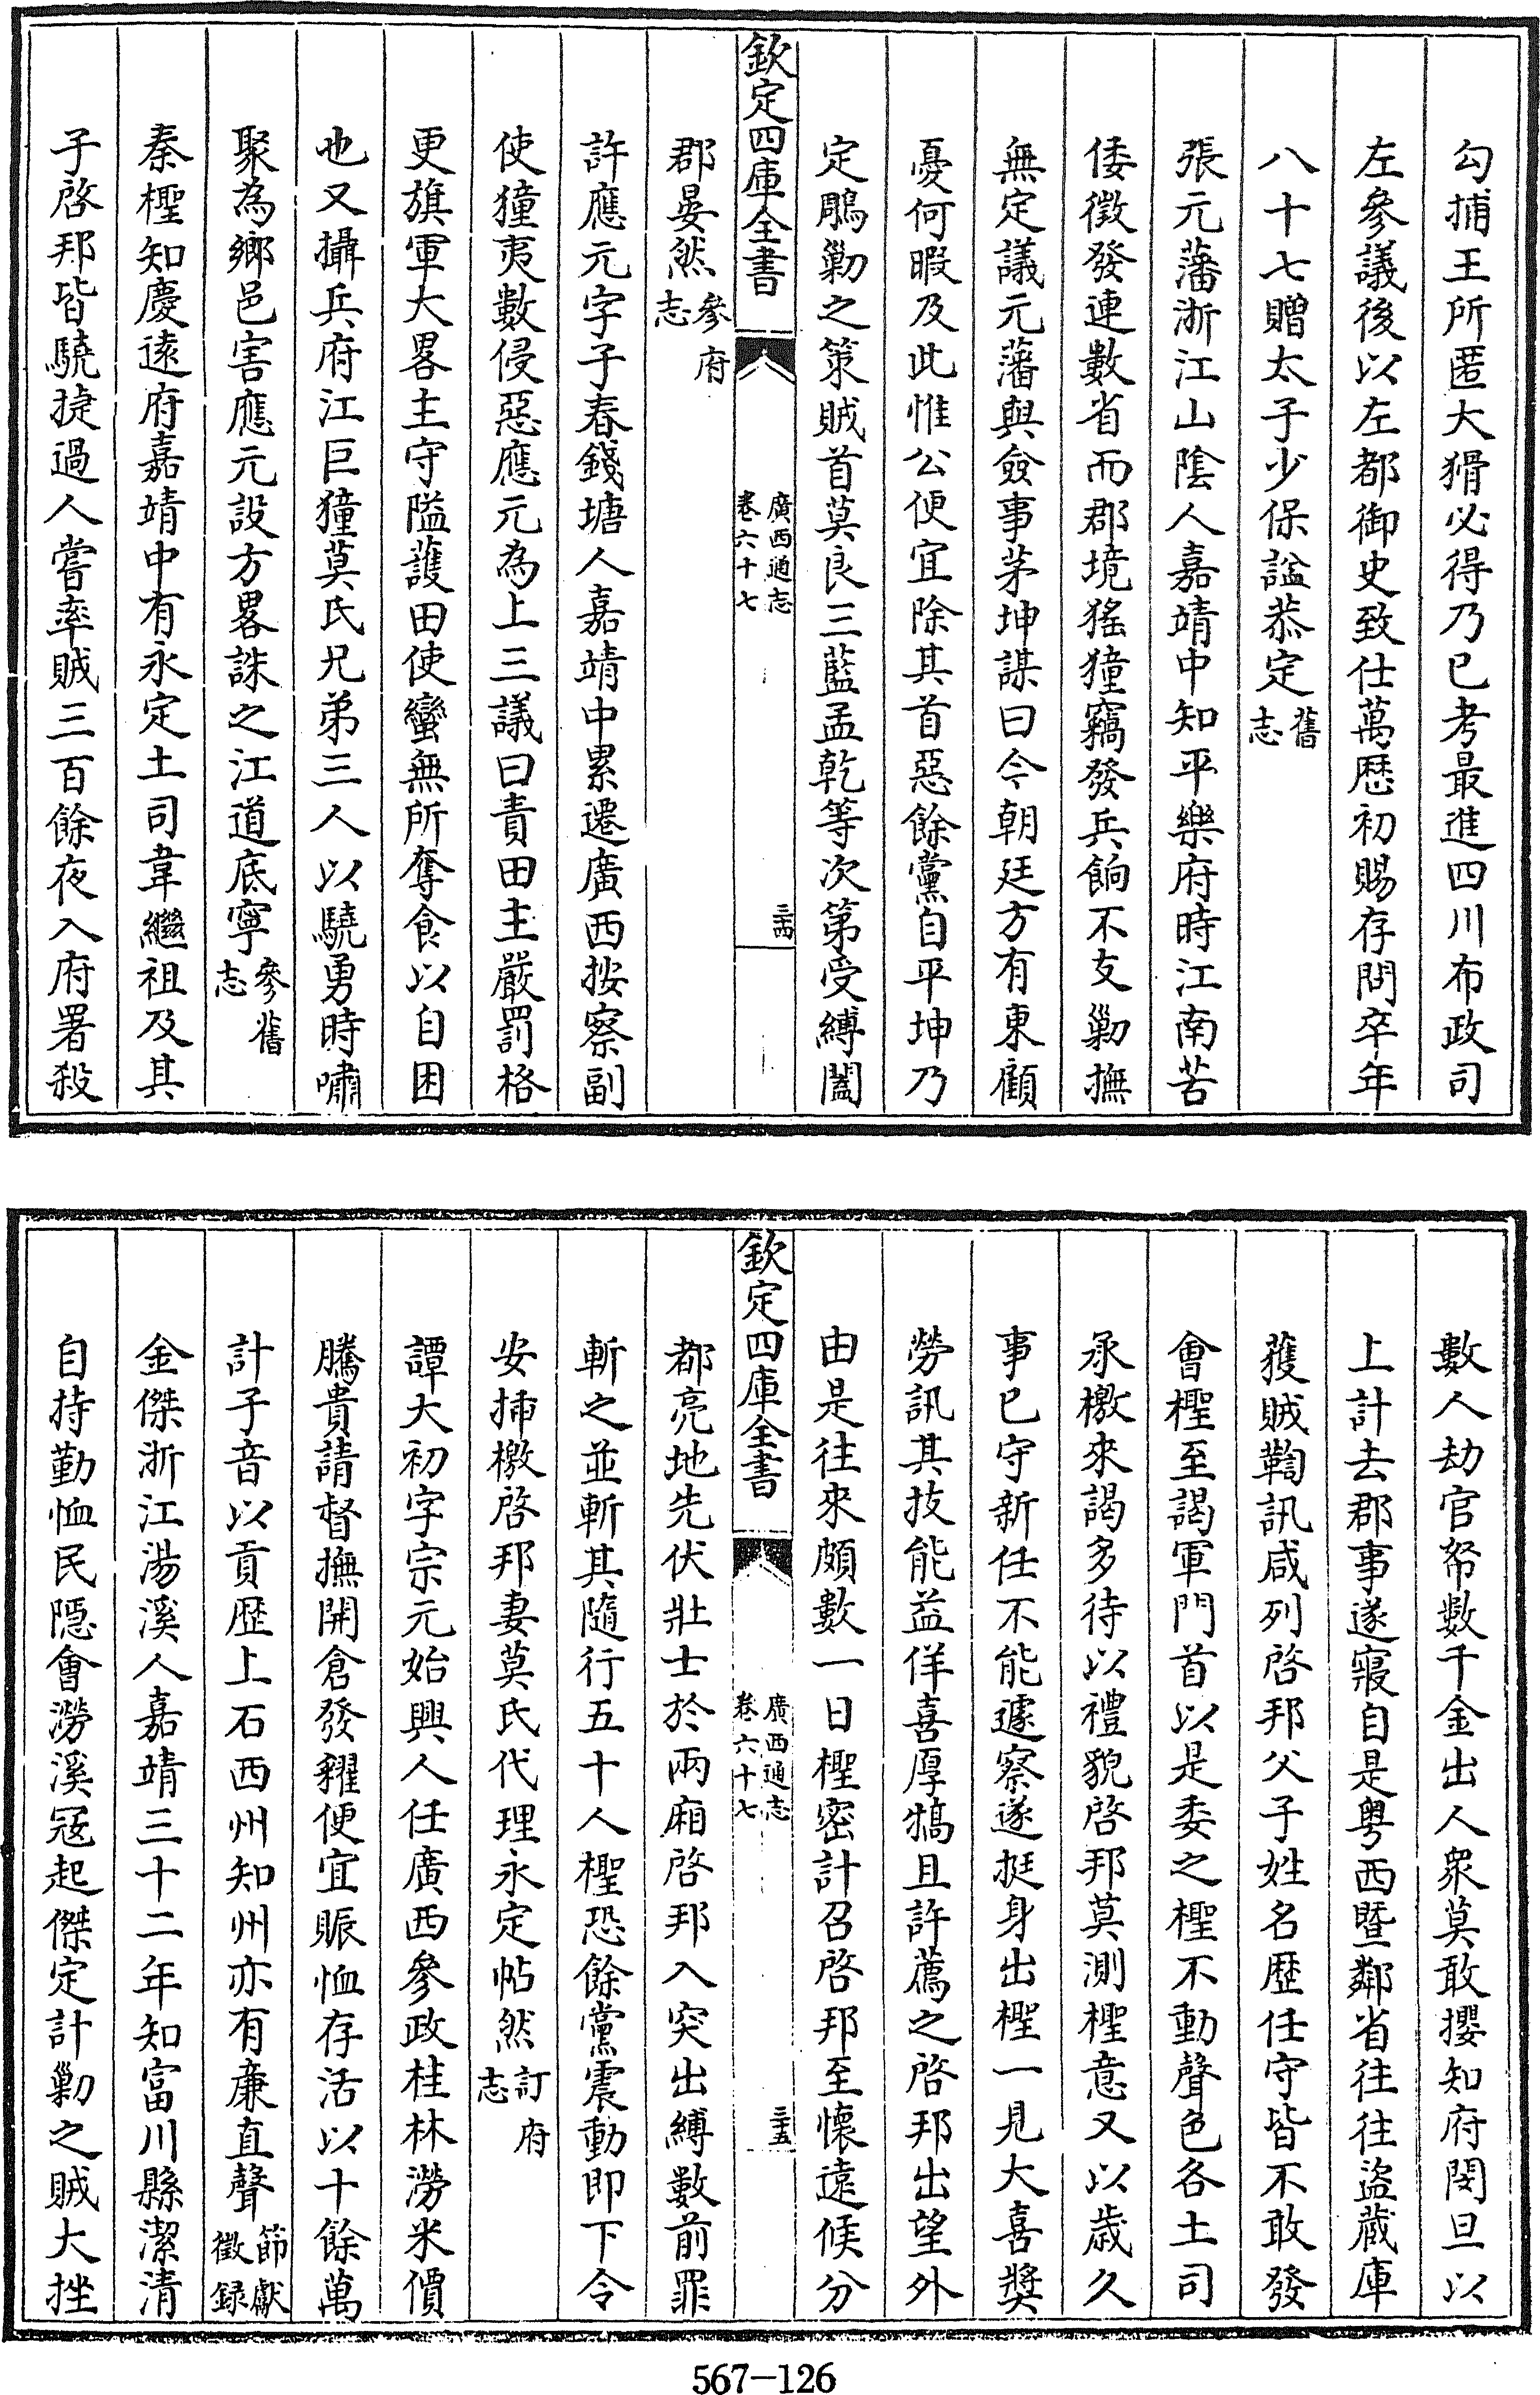 勾捕王所匿大猾必得乃已考最進四川布政司
左參議後以左都御史致仕萬歴初賜存問卒年
八十七贈太子少保諡恭定舊志
張元藩浙江山隂人嘉靖中知平樂府時江南苦
倭徵發連數省而郡境猺獞竊發兵餉不支勦撫
無定議元藩與僉事茅坤謀曰今朝廷方有東顧
憂何暇及此惟公便宜除其首惡餘黨自平坤乃
定鵰勦之策賊首莫良三藍孟乾等次第受縛闔
欽定四庫全書
廣西通志
卷六十七
三十四
郡晏然參府志
許應元字子春錢塘人嘉靖中累遷廣西按察副
使獞夷數侵惡應元為上三議曰責田主嚴罰格
更旗軍大畧主守隘護田使蠻無所奪食以自困
也又攝兵府江巨獞莫氏兄弟三人以驍勇時嘯
聚為鄉邑害應元設方畧誅之江道底寧參舊志
秦檉知慶遠府嘉靖中有永定土司韋繼祖及其
子啓邦皆驍捷過人嘗率賊三百餘夜入府署殺
數人劫官帑數千金出人衆莫敢攖知府閔旦以
上計去郡事遂寢自是粤西暨鄰省往往盜蔵庫
獲賊鞫訊咸列啓邦父子姓名歴任守皆不敢發
會檉至謁軍門首以是委之檉不動聲色各土司
承檄來謁多待以禮貌啓邦莫測檉意又以歳久
事已守新任不能遽察遂挺身出檉一見大喜奬
勞訊其技能益佯喜厚犒且許薦之啓邦出望外
由是往來頗數一日檉密計召啓邦至懷遠候分
欽定四庫全書
廣西通志
卷六十七
三十五
都亮地先伏壯士於兩廂啓邦入突出縛數前罪
斬之並斬其隨行五十人檉恐餘黨震動即下令
安揷檄啓邦妻莫氏代理永定帖然訂府志
譚大初字宗元始興人任廣西參政桂林澇米價
騰貴請督撫開倉發糶便宜賑恤存活以十餘萬
計子音以貢歴上石西州知州亦有廉直聲節獻徵録
金傑浙江湯溪人嘉靖三十二年知富川縣潔清
自持勤恤民隠會澇溪冦起傑定計勦之賊大挫
567-126